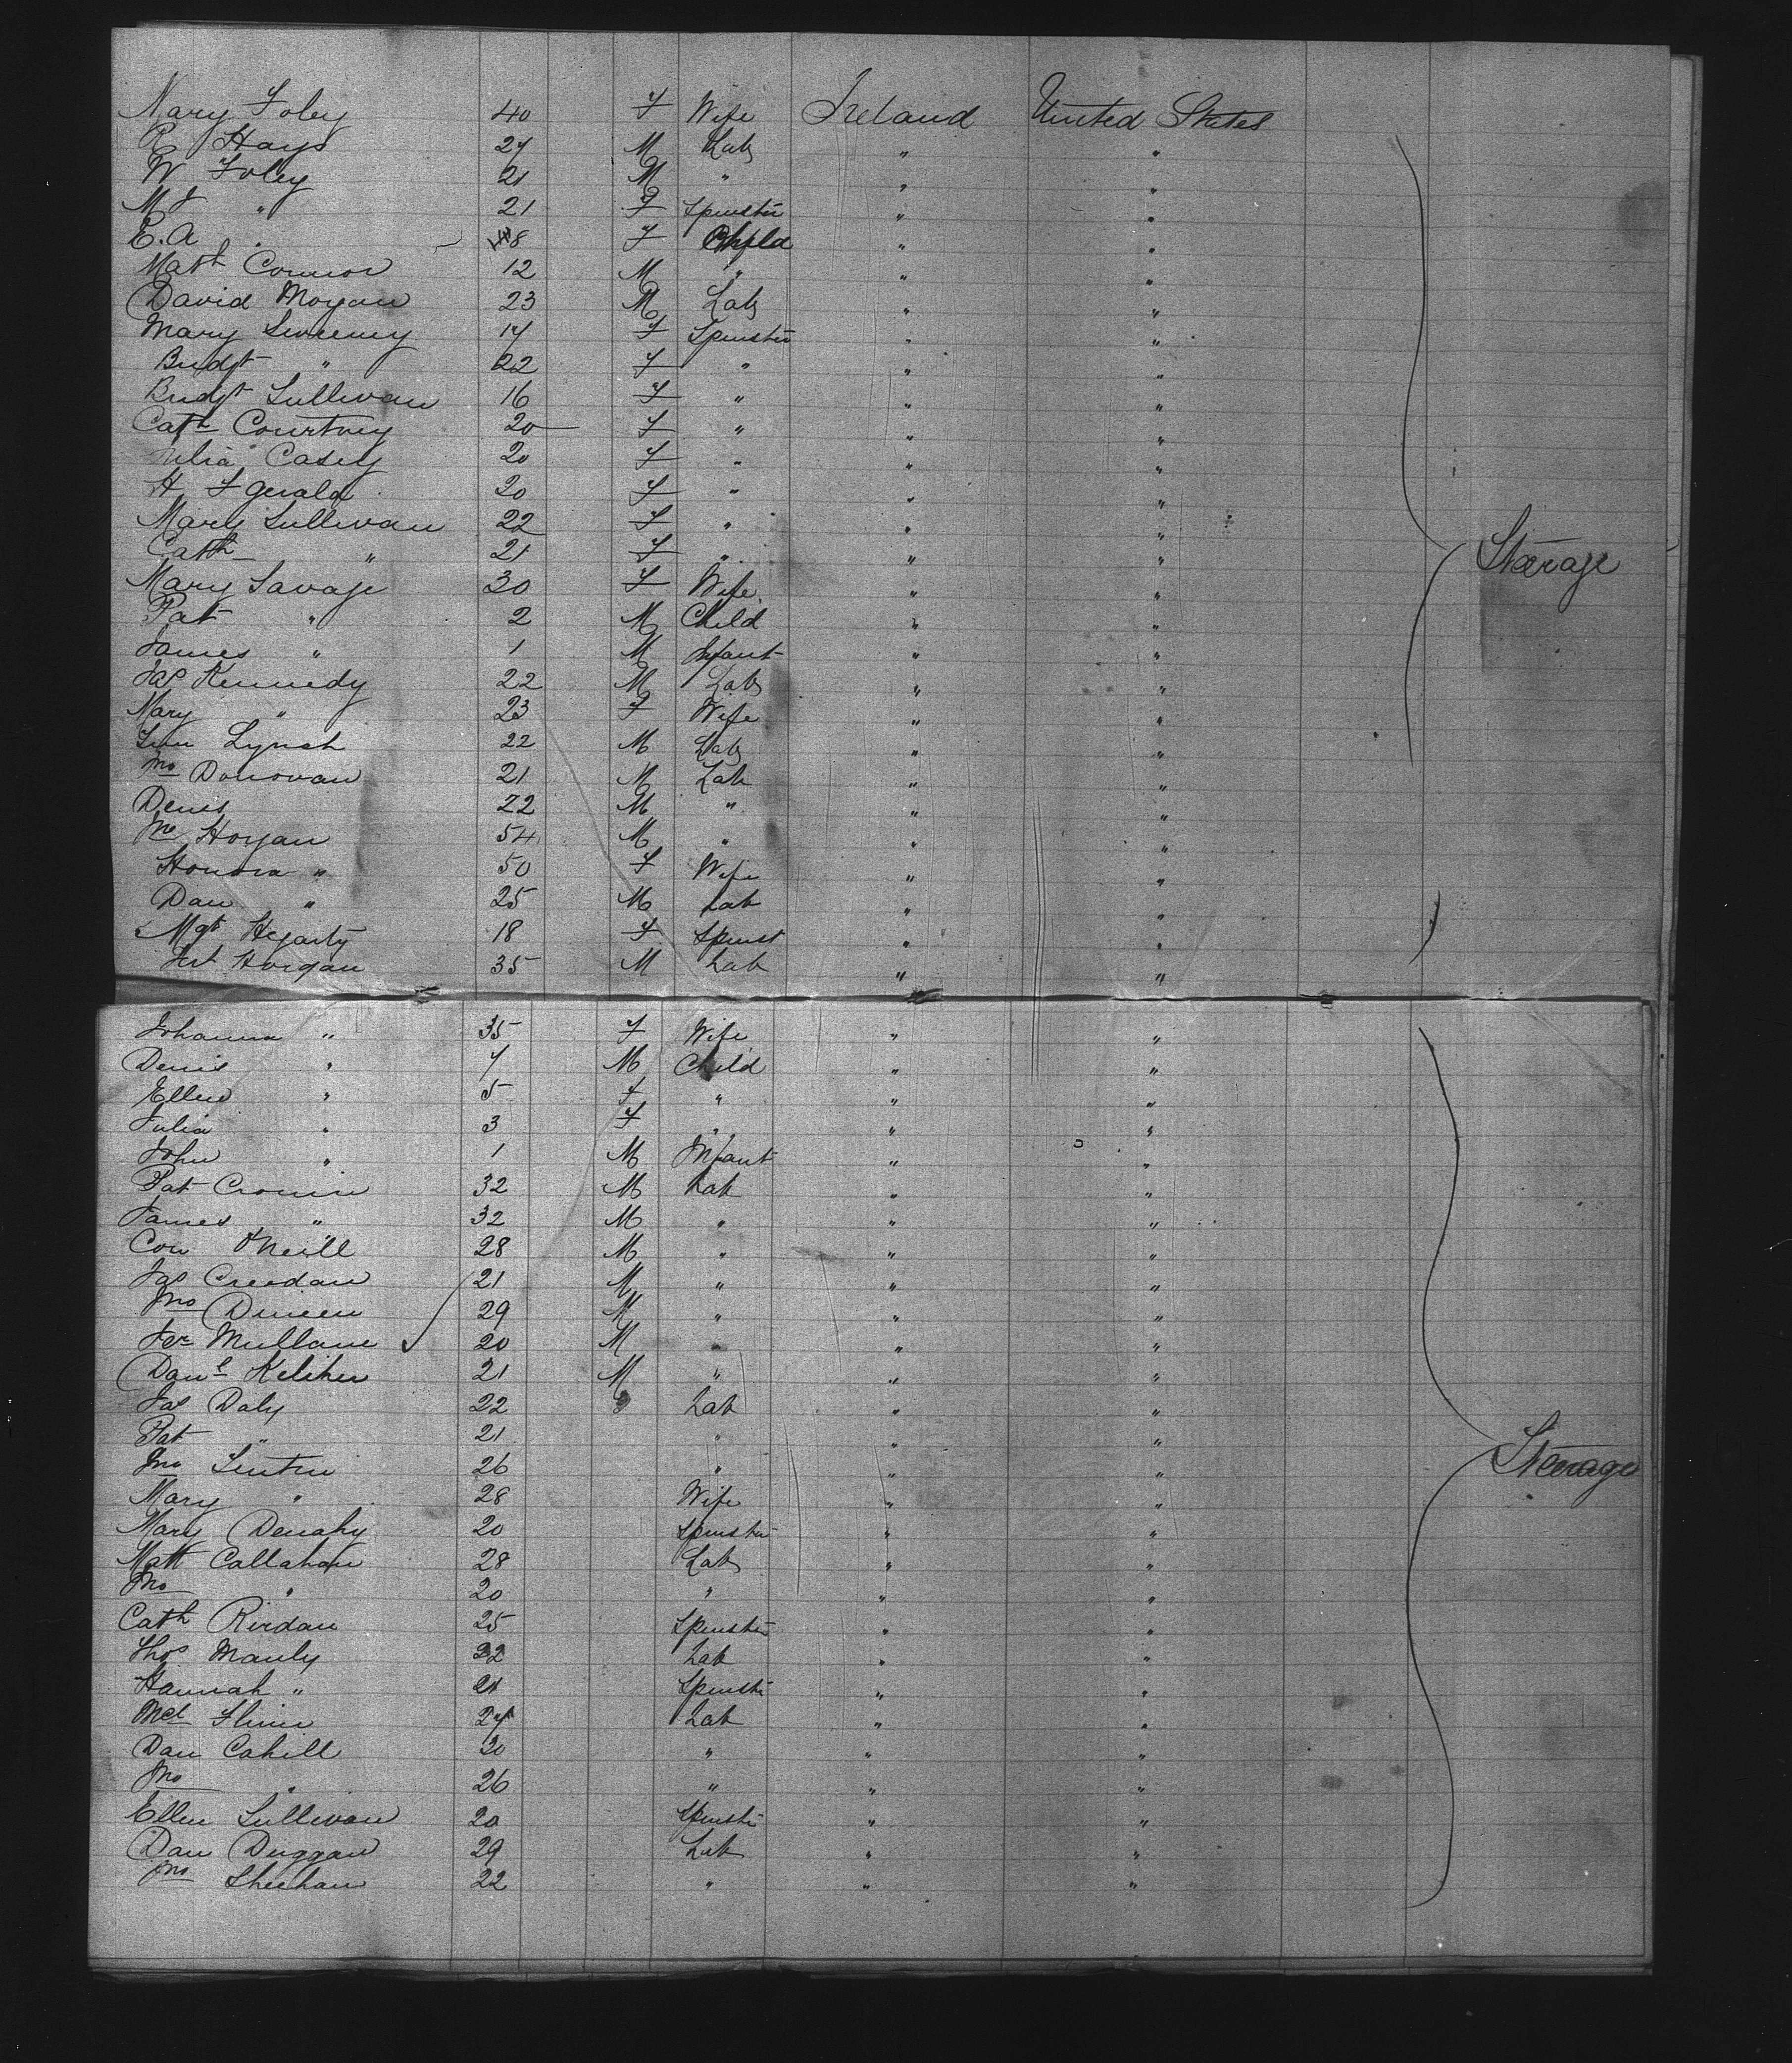 Mary Foley 40 F Wife Ireland United States
R Hays 27 M Lab " "
W Foley 21 M " " "
M J " 21 F Spinster " "
E. A " 8 F Child " "
Math Connor 12 M " " "
David Mogan 23 M Lab " "
Mary Sweeny 17 F Spinster " "
Bridgt " 22 F " " "
Bridgt Sullivan 16 F " " "
Cath Courtney 20 F " " "
Julia Casey 20 F " " "
H Fgerald 20 F " " "
Mary Sullivan 22 F " " "
Cath " 21 F " " " Steerage
Mary Savage 30 F Wife " "
Pat " 2 M Child " "
James " 1 M Infant " "
Jas Kennedy 22 M Lab " "
Mary " 23 F Wife " "
Lynch 22 M Lab " "
Jno Donovan 21 M Lab " "
Denis 22 M " " "
Horgan 54 M " " "
Honora " 50 F Wife " "
Dan " 25 M Lab " "
Mgt Hegarty 18 F Spinst " "
Horgan 35 M Lab " "
Johanna " 35 F Wife " "
Denis " 7 M Child " "
Ellen " 5 F " " "
Julia " 3 F " " "
John " 1 M Infant " "
Pat Cronin 32 M Lab " "
James " 32 M " " "
Con O'Neill 28 M " " "
Jas Creedan 21 M " " "
Jno Dineen 29 M " " "
Jer Mullane 20 M " " "
Danl Keliher 21 M " " "
Jas Daly 22 Lab " "
Pat " 21 " " " Steerage
Jno 26 " " "
Mary " 28 Wife " "
Mary Denahy 20 Spinster " "
Matt Callahan 28 Lab " "
Jno " 20 " " "
Cath Rirdan 25 Spinster " "
Thos Manly 22 Lab " "
Hannah " 21 Spinstr " "
Mcl Flinn 24 Lab " "
Dan Cahill 30 " " "
Jno " 26 " " "
Ellen Sullivan 20 Spinstr " "
Dan Duggan 29 Lab " "
Jno Sheehan 22 " " "